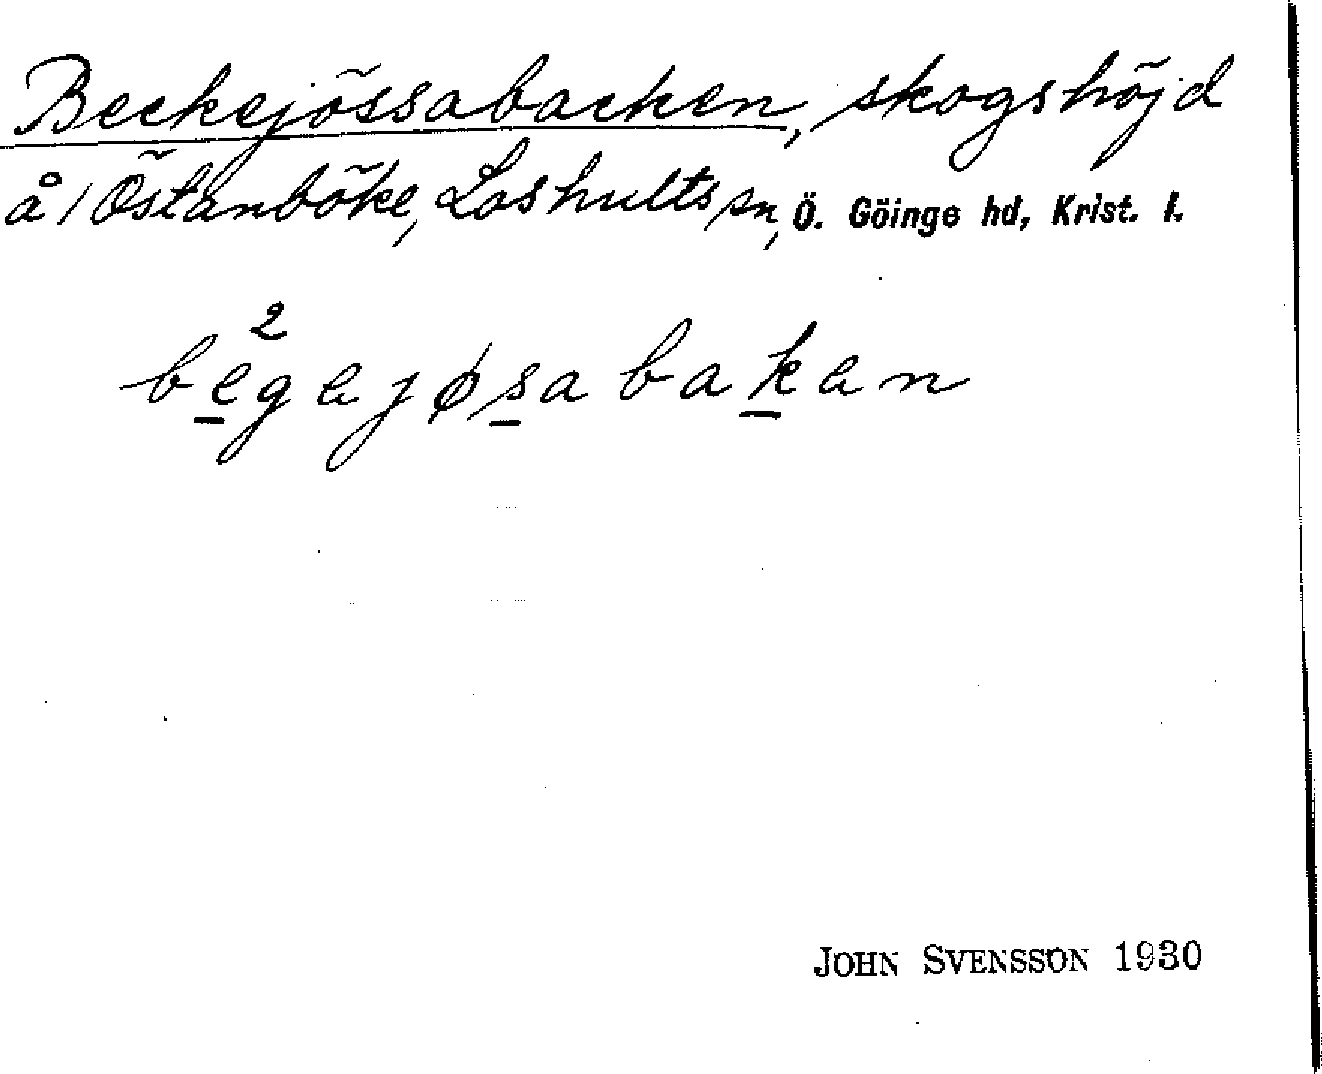 Beckejössabacken, skogshöjd
å Östanböke, Loshults sn, Ö. Göinge hd, Krist. l.
2
begejøsabakan
JOHN SVENSSON 1930